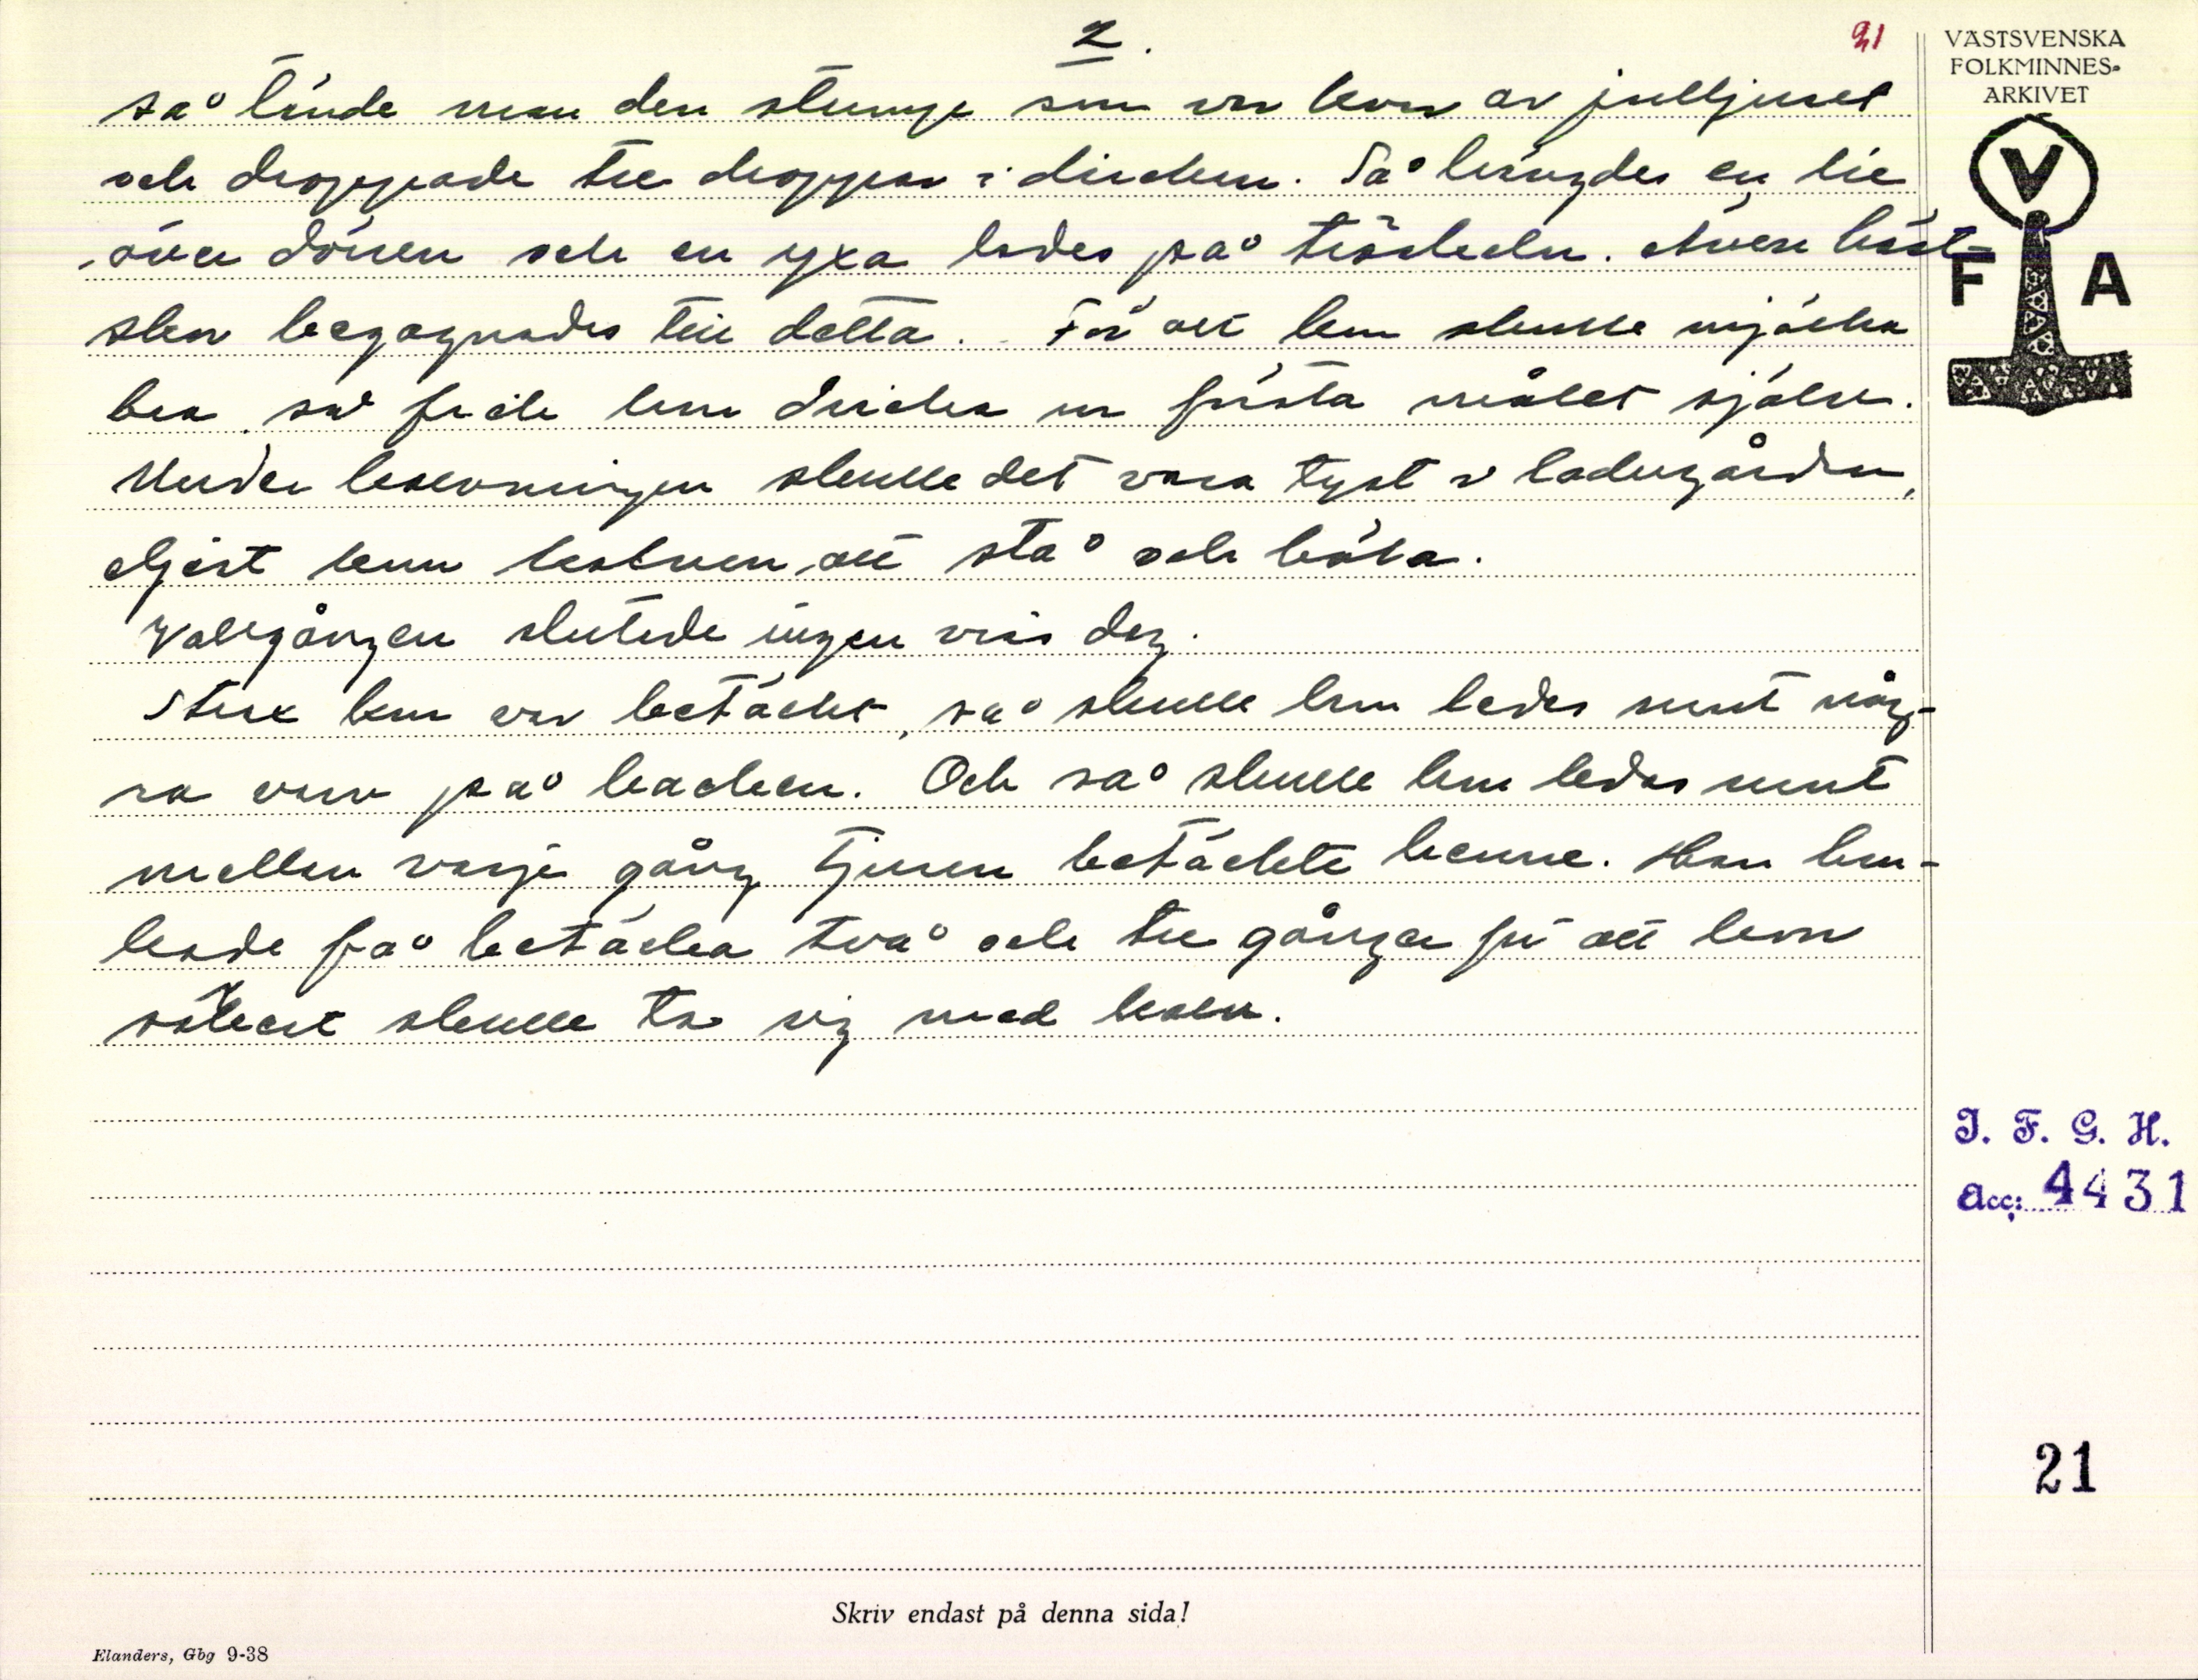 2.
21
VÄSTSVENSKA
FOLKMINNES-
ARKIVET
V
F A
så tände man den stump som var kvar av julljuset
och droppade tre droppar i dricken. Så hängdes en lie
över dörren och en yxa lades på tröskeln. Även häst-
skor begagnades till detta. För att kon skulle mjölka
bra så fick kon dricka ur första målet själv.
Under kalvningen skulle det vara tyst i ladugården,
eljest kunn kalven att stå och böla.
Vallgången slutade ingen viss dag.
Strax kon var betäckt, så skulle kon ledas runt någ-
ra varv på backen. Och så skulle kon ledas runt
mellan varje gång tjuren betäckte henne. Han bru-
kade få betäcka två och tre gånger för att kon
säkert skulle ta sig med kalv.
I. F. G. H.
Acc: 4431
21
Skriv endast på denna sida!
Elanders, Gbg 9-38